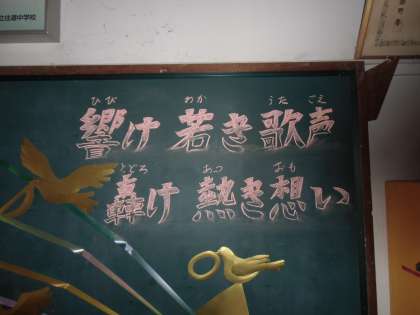 立住道中学校
ひび わか うたごえ
響け 若き歌声
とどろ あつ おも
轟け 熱き想い